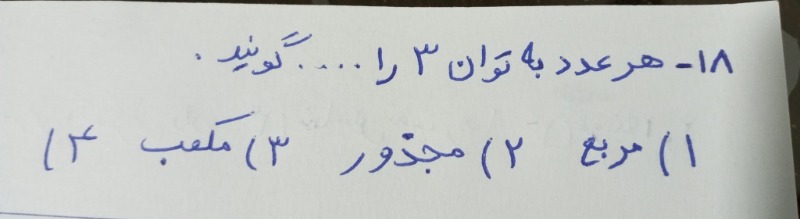 ۱۸- هر عدد به توان ۳ را .... گویند .
۱) مربع ۲) مجذور ۳) مکعب ۴)